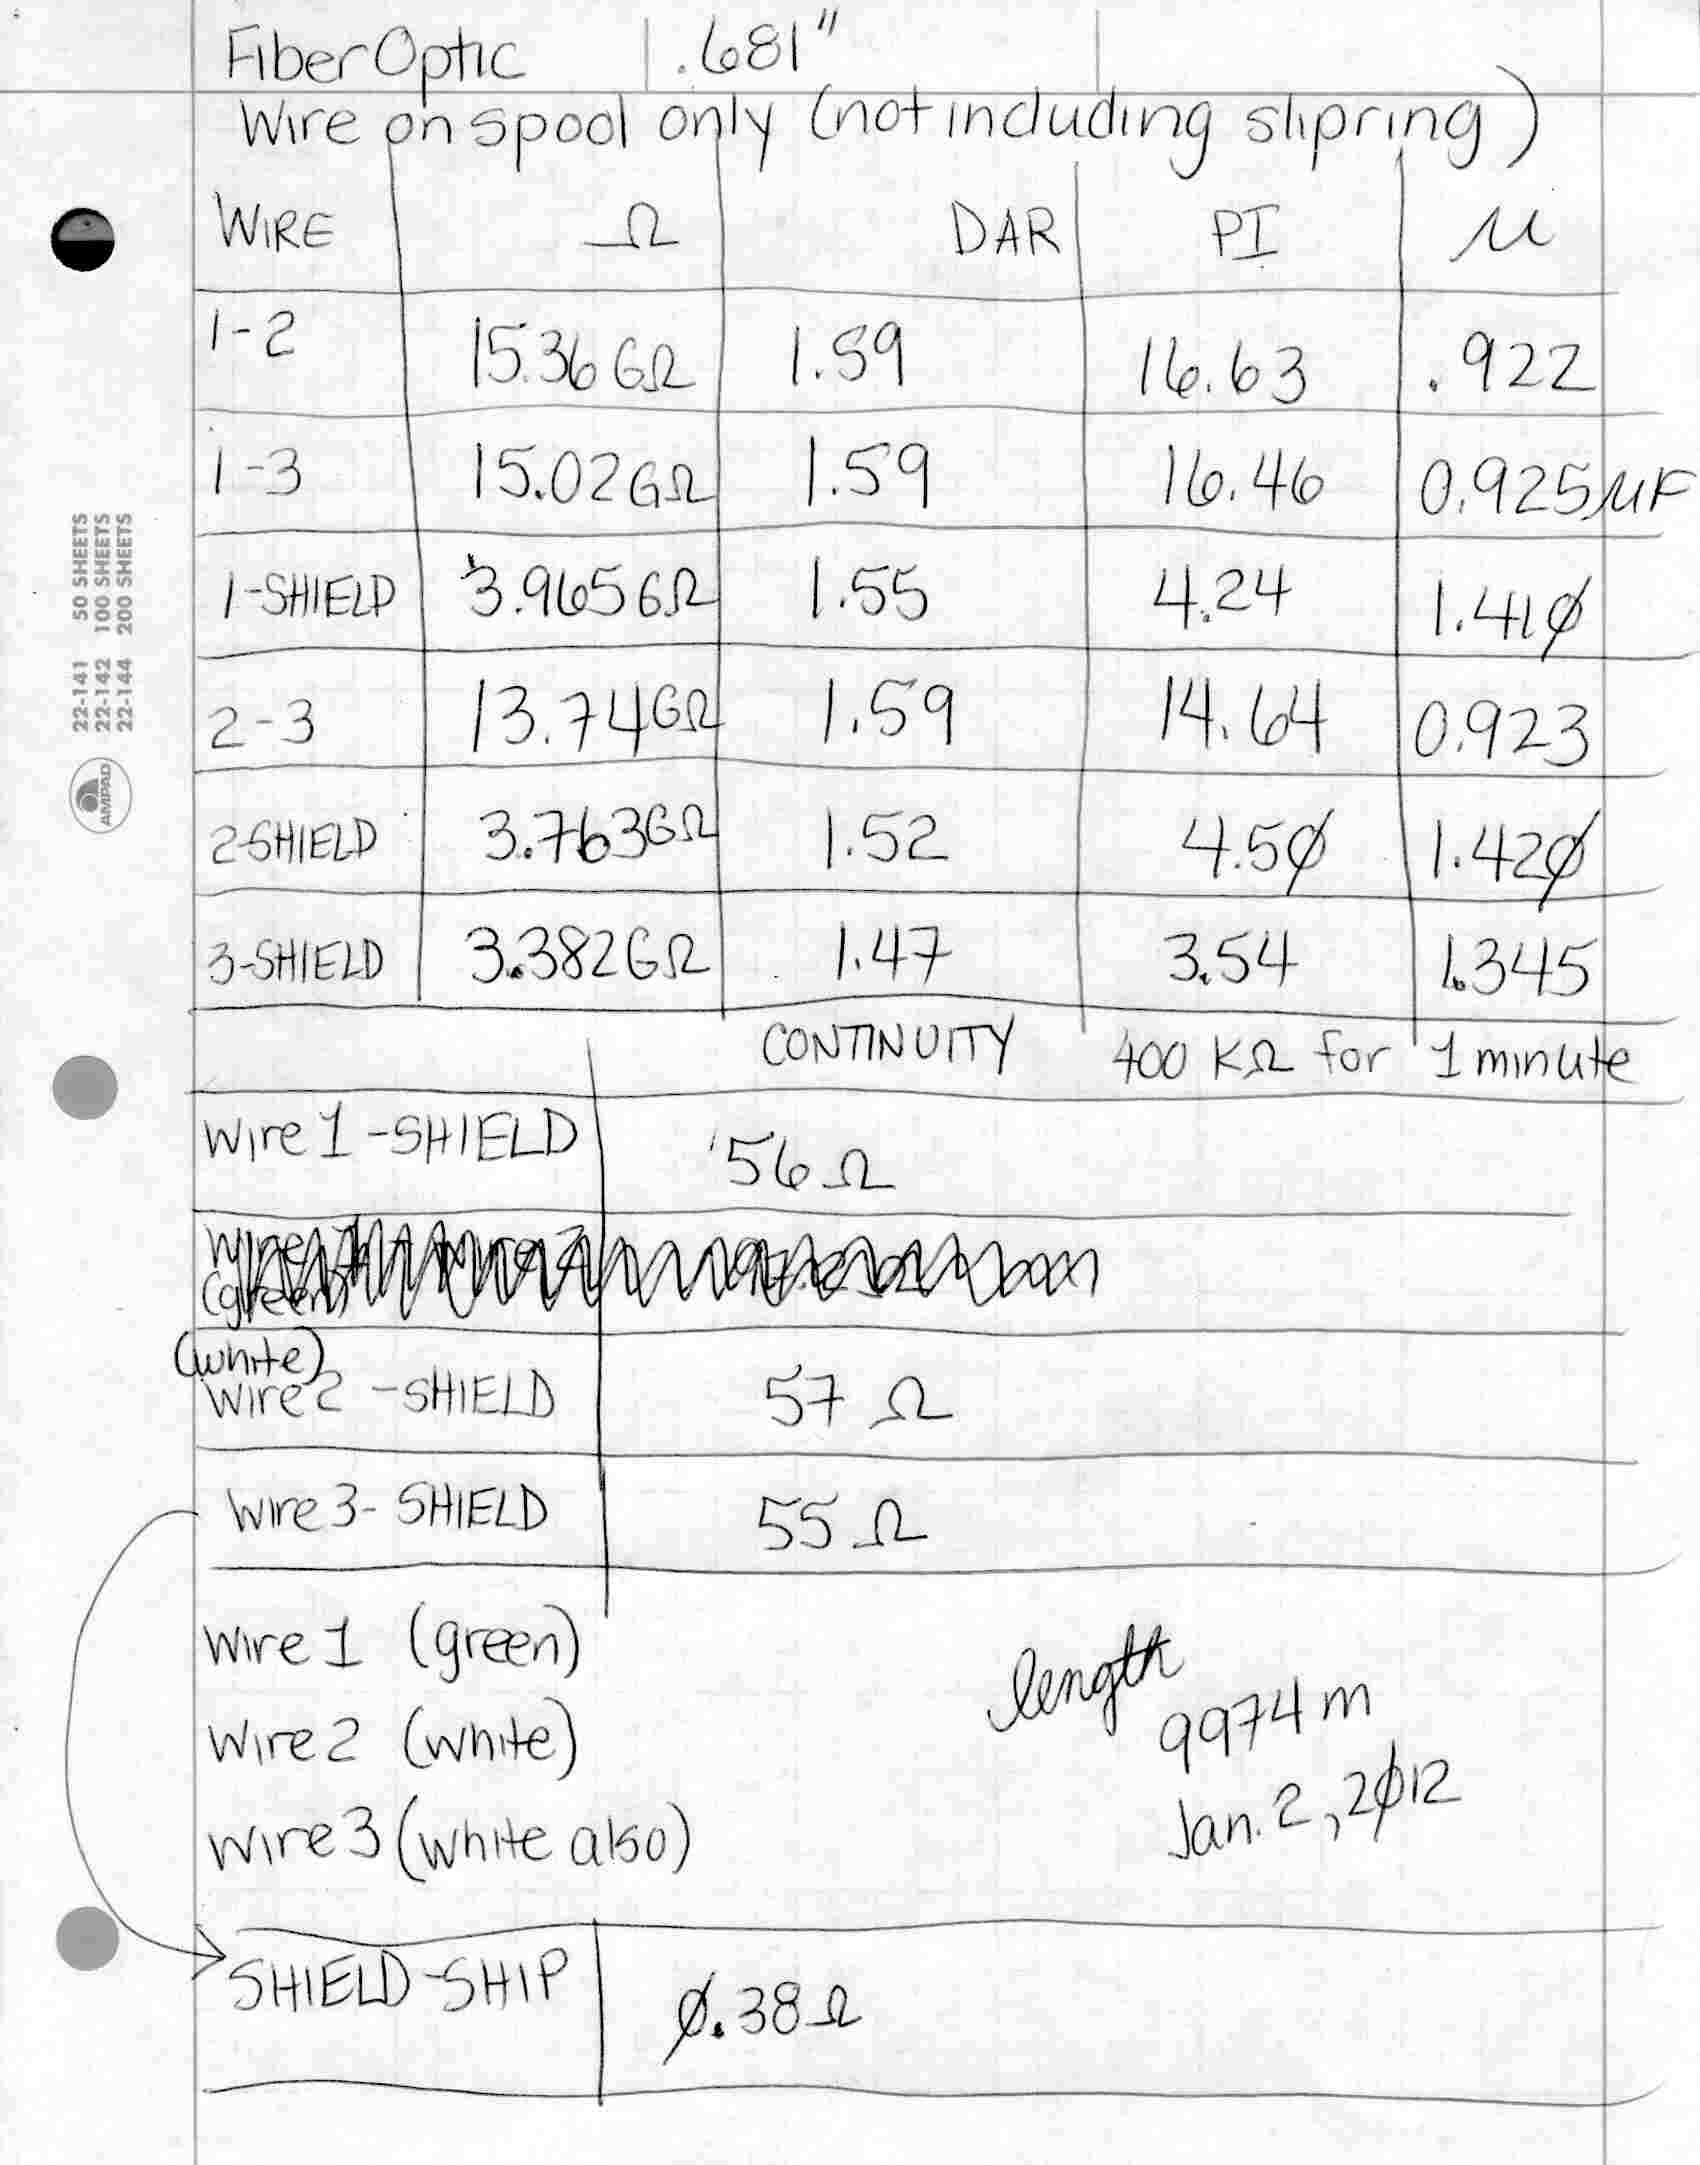 Fiber Optic .681"
Wire on spool only (not including slipring)
WIRE Ω DAR PI µ
1-2 15.36 GΩ 1.59 16.63 .922
1-3 15.02 GΩ 1.59 16.46 0.925 µF
1-SHIELD 3.965 GΩ 1.55 4.24 1.41Ø
2-3 13.74 GΩ 1.59 14.64 0.923
2-SHIELD 3.763 GΩ 1.52 4.5Ø 1.42Ø
3-SHIELD 3.382 GΩ 1.47 3.54 1.345
CONTINUITY 400 KΩ for 1 minute
Wire 1 -SHIELD 56 Ω
(green)
(white)
Wire 2 -SHIELD 57 Ω
Wire 3- SHIELD 55 Ω
Wire 1 (green)
Wire 2 (white)
Wire 3 (white also)
length
9974 m
Jan. 2, 2Ø12
SHIELD-SHIP Ø.38 Ω
22-141 50 SHEETS
22-142 100 SHEETS
22-144 200 SHEETS
AMPAD